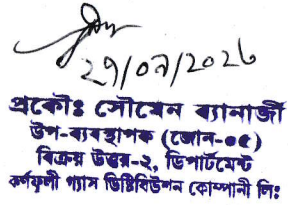 ২৭/০৭/২০২৬
প্রকৌঃ সৌমেন ব্যানার্জী
উপ-ব্যবস্থাপক (জোন-০৫)
বিক্রয় উত্তর-২, ডিপার্টমেন্ট
কর্ণফুলী গ্যাস ডিষ্ট্রিবিউশন কোম্পানী লিঃ